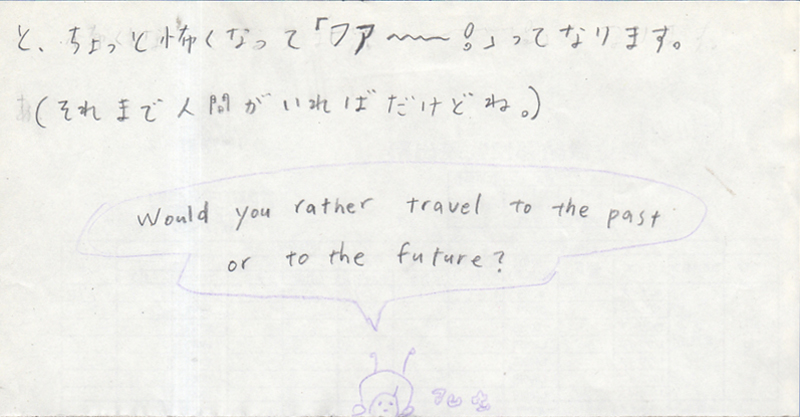 と、ちょっと怖くなって「ファ〜〜〜!」ってなります。
(それまで人間がいればだけどね。)
Would you rather travel to the past
or to the future?